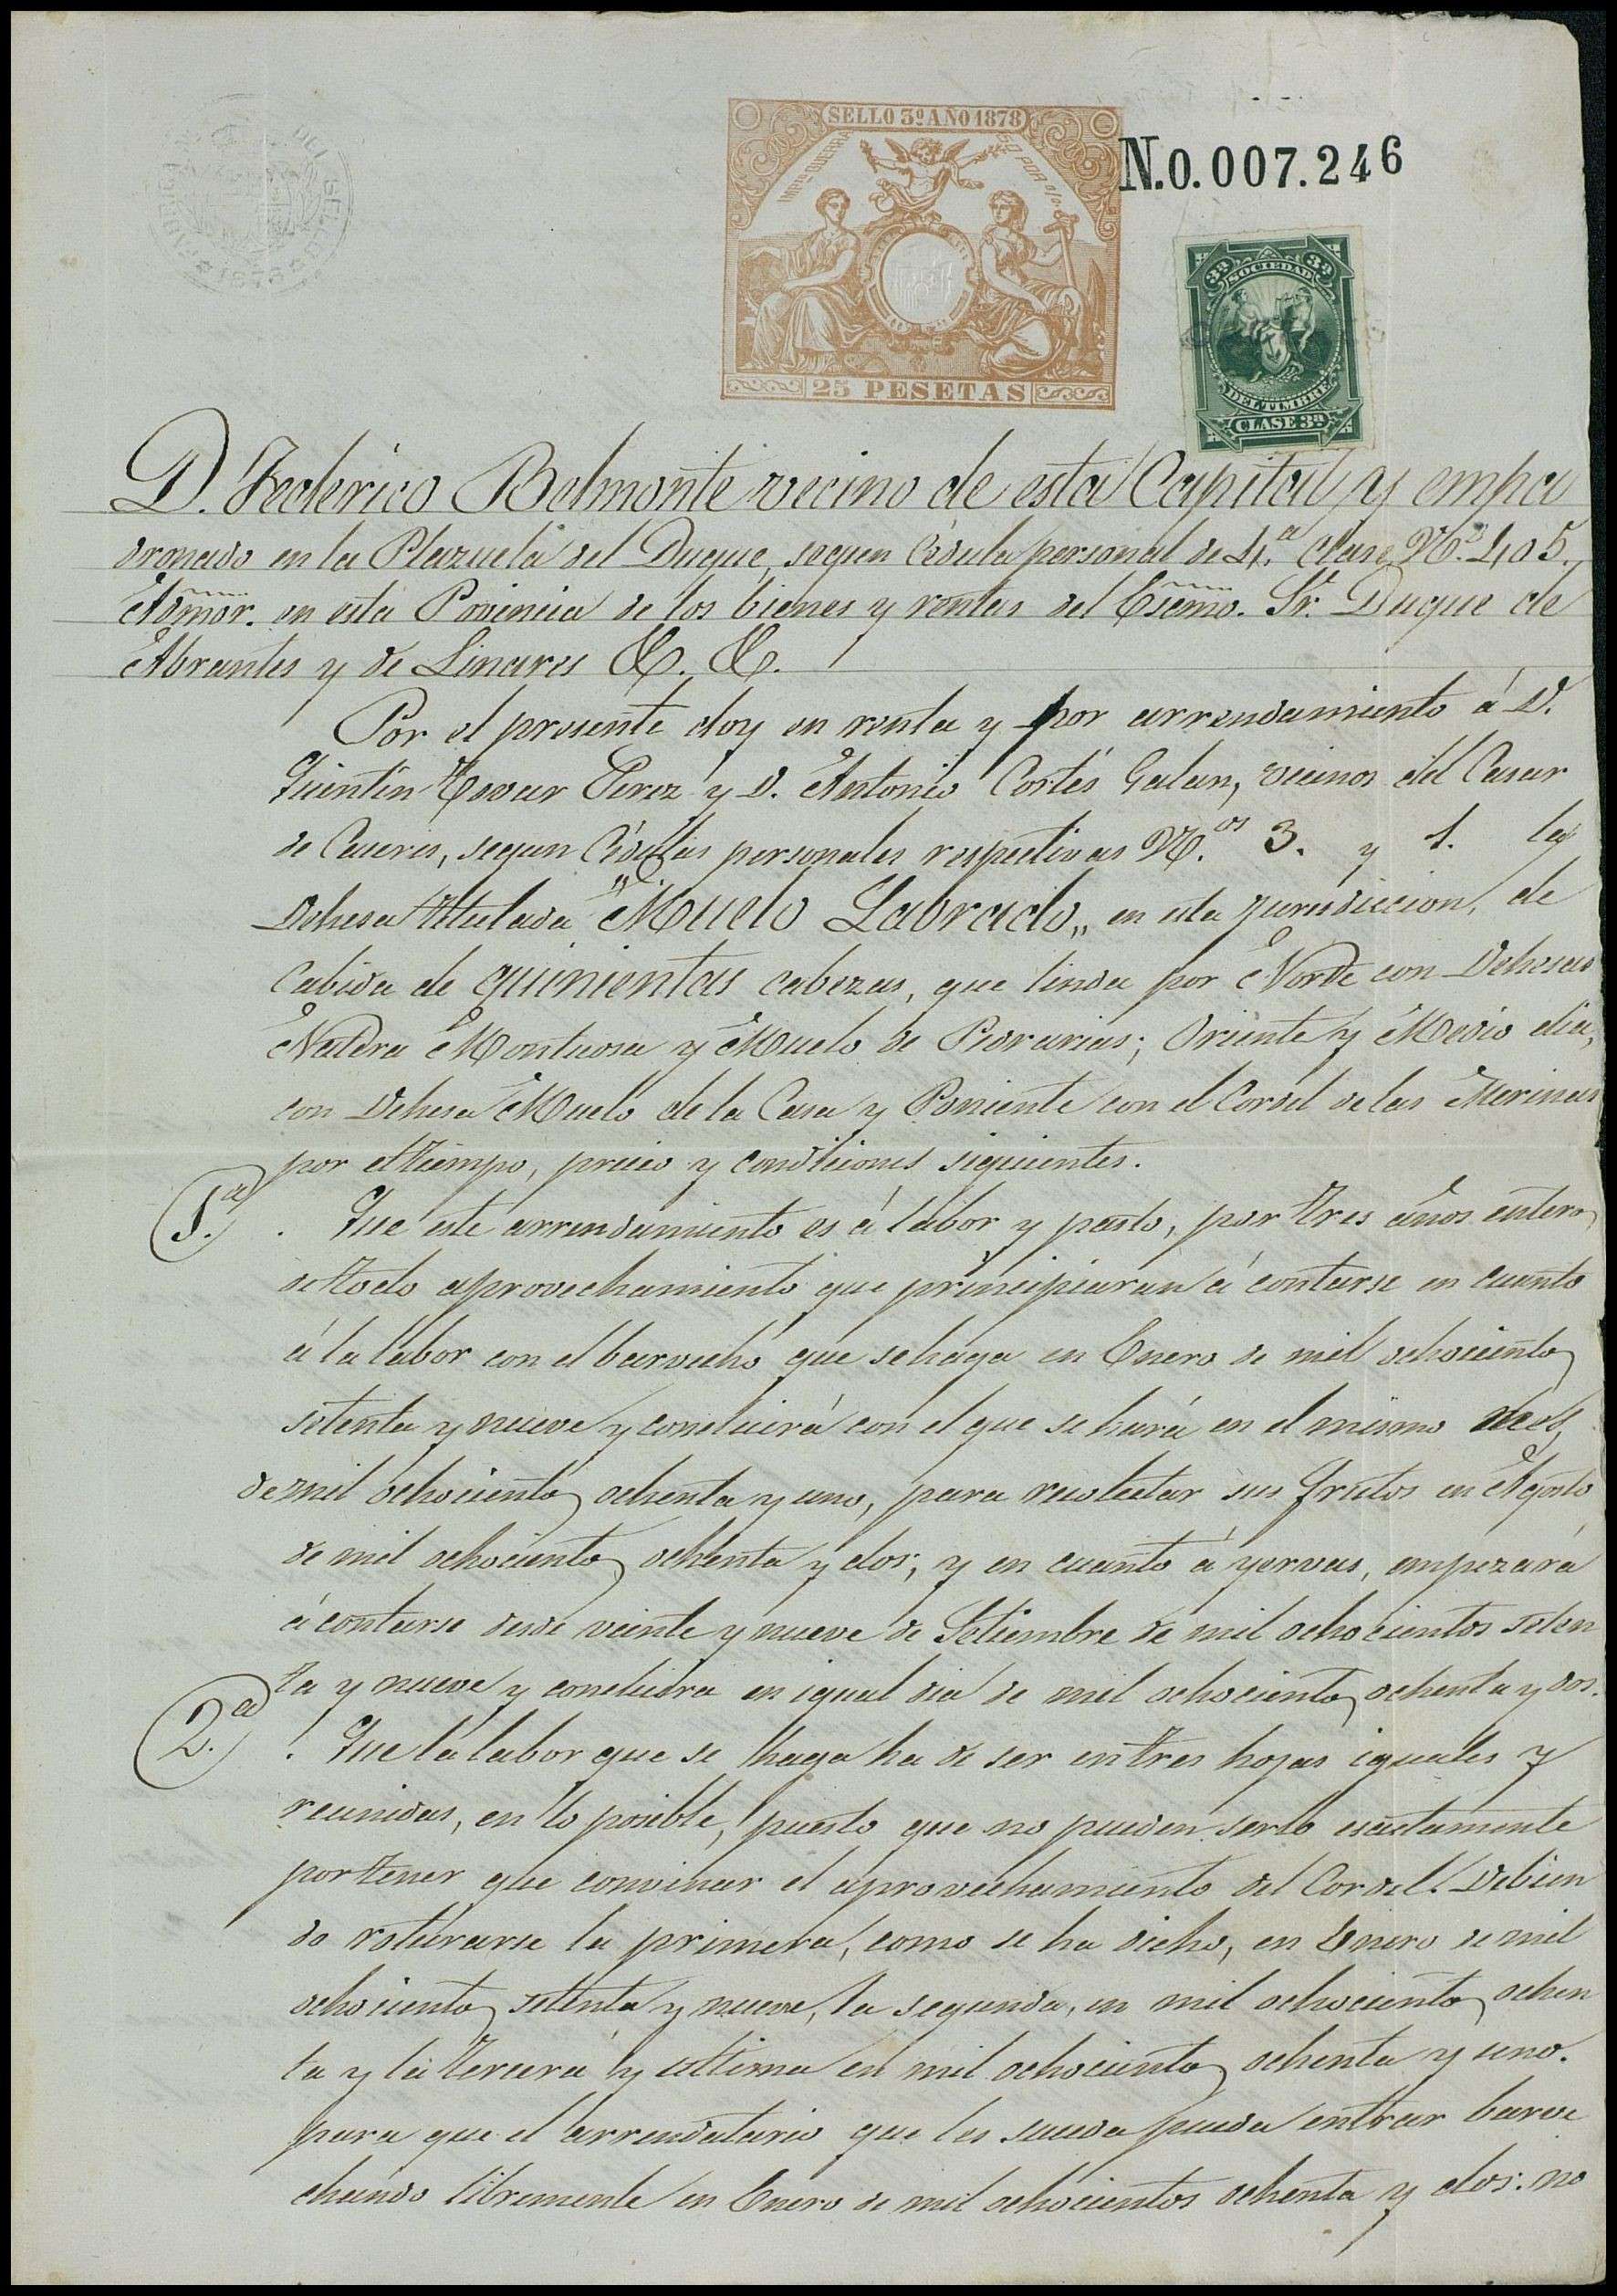 SELLO 3º AÑO 1878
IMPTO GUERRA
50 POR %
25 PESETAS
N.0.007.246
3ª 3ª
SOCIEDAD
DEL TIMBRE
CLASE 3ª
D. Federico Belmonte vecino de esta Capital y empa
dronado en la Plazuela del Duque, segun Cédula personal de 4.ª clase N.º 405.
Admor. en esta Provincia de los bienes y rentas del Escmo. Sr. Duque de
Abrantes y de Linares &. &.
Por el presente doy en renta y por arrendamiento á D.
Quintin Tovar Perez y D. Antonio Cortés Galan, vecinos del Casar
de Caceres, segun Cédulas personales respectivas N.os 3. y 1. la
Dehesa titulada "Muelo Labrado„ en esta jurisdiccion, de
cabida de quinientas cabezas, que linda por Norte con Dehesas
Natera Montuosa y Muelo de Pedrarias; Oriente y Medio dia,
con Dehesa Muelo de la Casa y Poniente con el Cordel de las Merinas
por el tiempo, precio y condiciones siguientes.
1.ª . Que este arrendamiento es á labor y pasto, por tres años enteros
de todo aprovechamiento que principiaran á contarse en cuanto
á la labor con el barvecho que se haga en Enero de mil ochocientos
setenta y nueve y concluirá con el que se hará en el mismo mes,
de mil ochocientos ochenta y uno, para recolectar sus frutos en Agosto
de mil ochocientos ochenta y dos; y en cuanto á yervas, empezará
á contarse desde veinte y nueve de Setiembre de mil ochocientos seten
ta y nueve y concluira en igual dia de mil ochocientos ochenta y dos.
2.ª . Que la labor que se haga ha de ser en tres hojas iguales y
reunidas, en lo posible, puesto que no pueden serlo esactamente
por tener que convinar el aprovechamiento del Cordel. Debien
do roturarse la primera, como se ha dicho, en Enero de mil
ochocientos setenta y nueve, la segunda, en mil ochocientos ochen
ta y la tercera y ultima en mil ochocientos ochenta y uno.
para que el arrendatario que les suceda pueda entrar barve
chando libremente en Enero de mil ochocientos ochenta y dos: no